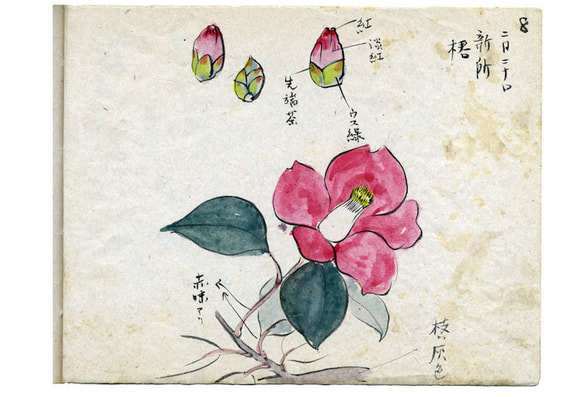 8
二月二十日
新所
紅
淡紅
先端茶
ウス緑
赤味アリ
枝ハ灰色